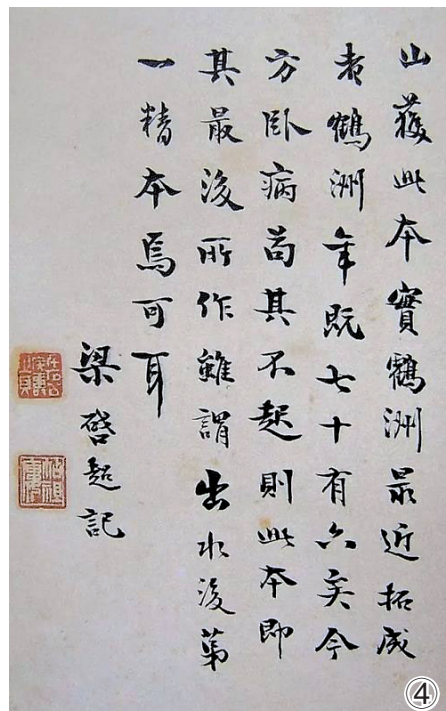 山獲此本實鶴洲最近拓成
者鶴洲年既七十有六矣今
方臥病苟其不起則此本即
其最後所作雖謂出水後第
一精本焉可耳
梁啓超記
④